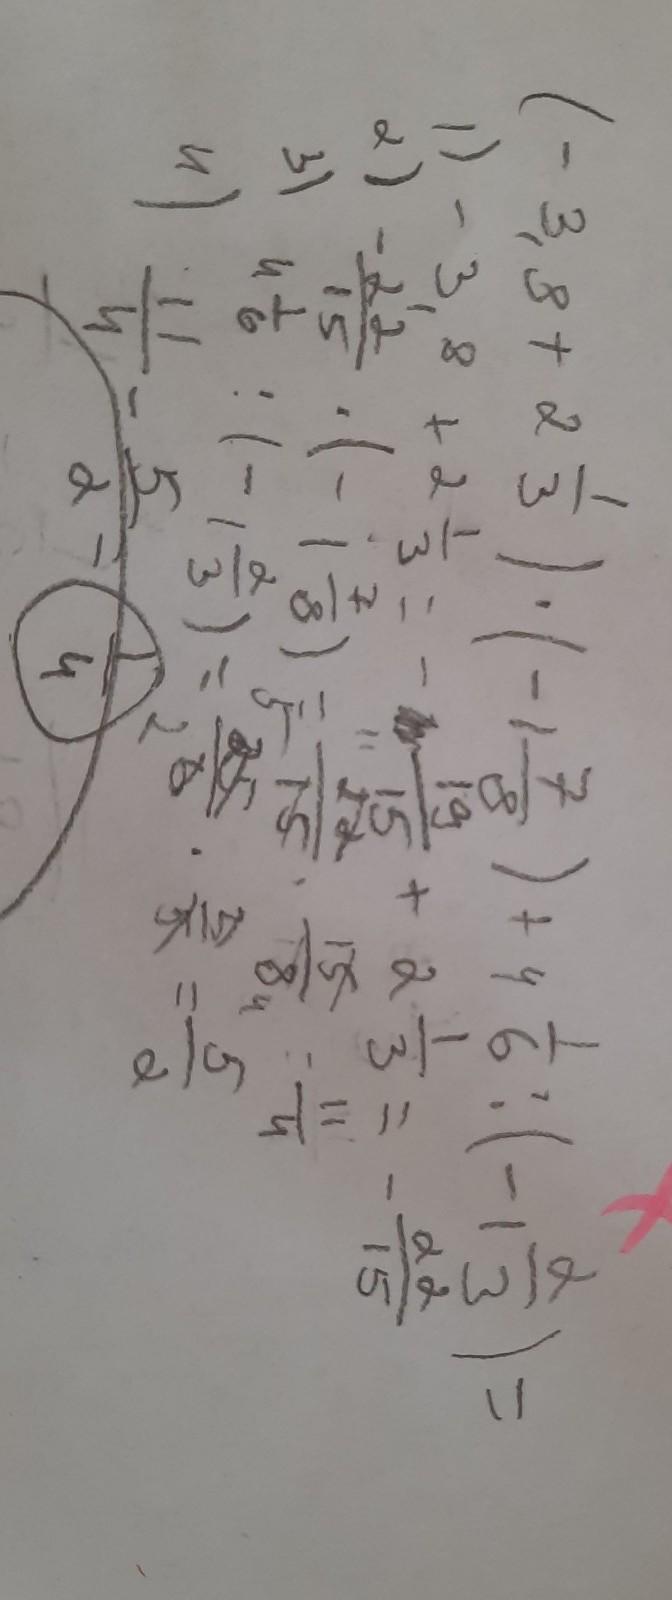 (-3,8 + 2 1/3) · (-1 7/8) + 4 1/6 : (-1 2/3) =
1) -3,8 + 2 1/3 = - 19/15 + 2 1/3 = - 22/15
2) -22/15 · (-1 7/8) = 22/15 · 15/8 4 = 11/4
3) 4 1/6 : (-1 2/3) = 25/6 2 · 3/5 = 5/2
4) 11/4 - 5/2 = 1/4